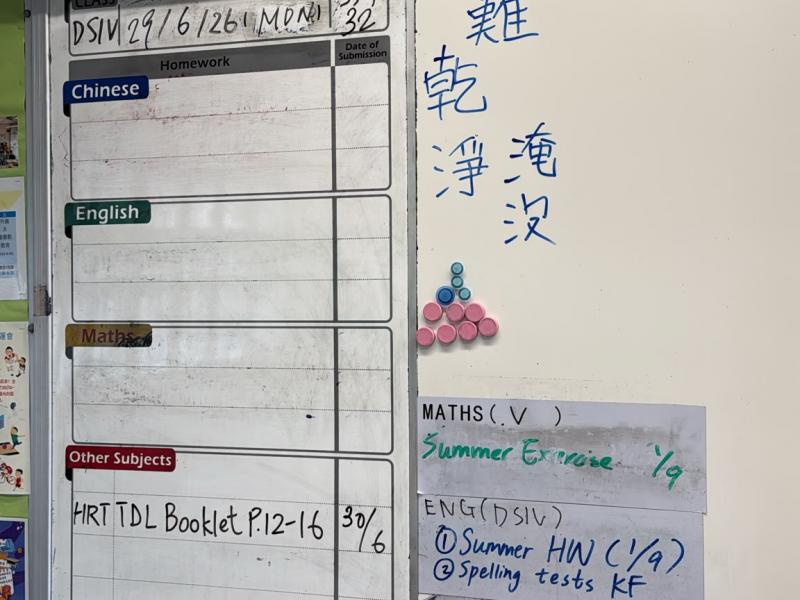 CLASS
DSIV 29/6/26 (MON) 32
Homework
Date of Submission
Chinese
English
Maths
Other Subjects
HRT TDL Booklet P.12-16 30/6
難
乾
淨
淹
沒
MATHS (V)
Summer Exercise 1/9
ENG (DSIV)
① Summer HW (1/9)
② Spelling tests KF